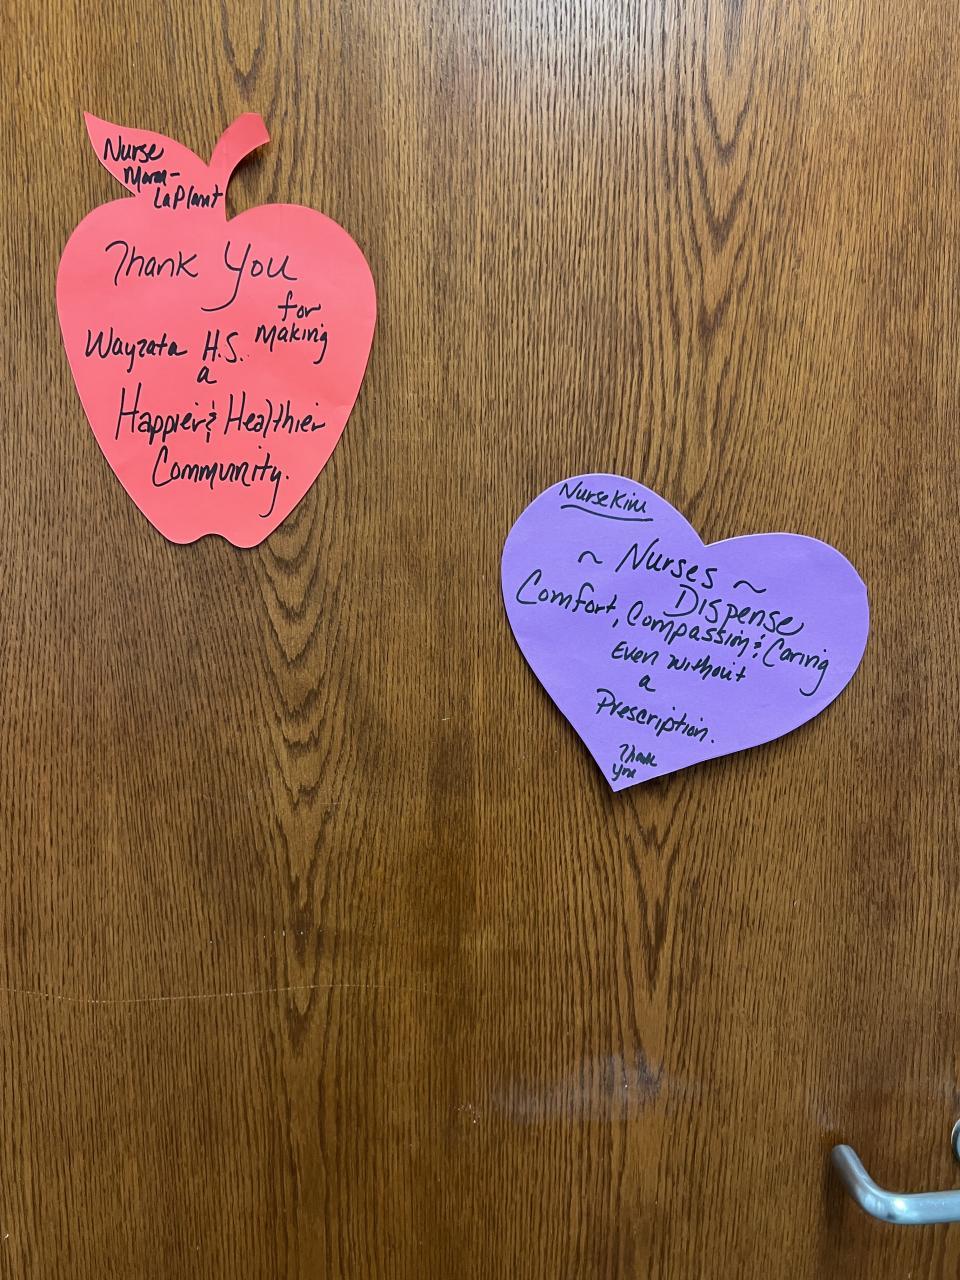 Nurse
LaPlant
Thank You
for
Making
Wayzata H.S.
a
Happier & Healthier
Community.
Nurse Kim
~ Nurses ~
Dispense
Comfort, Compassion & Caring
Even without
a
Prescription.
Thank
You